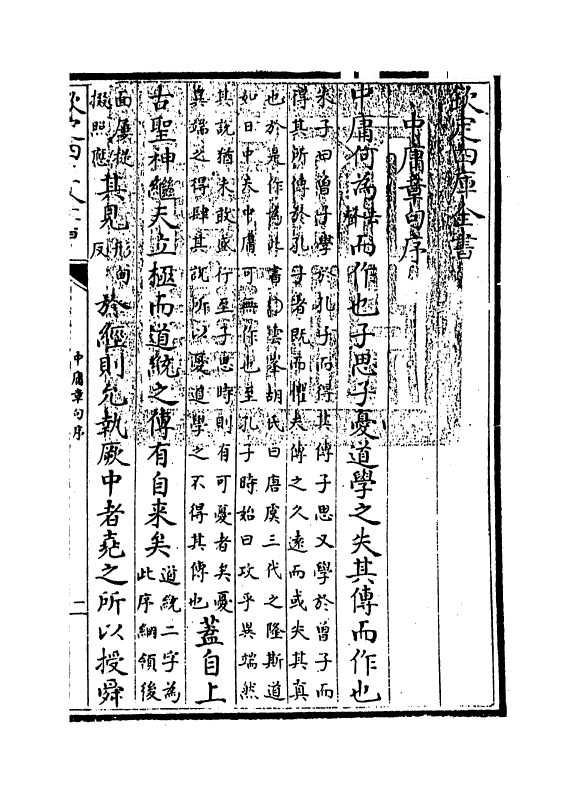 欽定四庫全書
中庸章句序
中庸何為去聲而作也子思子憂道學之失其傳而作也
朱子曰曾子學於孔子而得其傳子思又學於曾子而
得其所傳於孔子者既而懼夫傳之久遠而或失其真
也於是作為此書○雲峯胡氏曰唐虞三代之隆斯道
如日中天中庸可無作也至孔子時始曰攻乎異端然
其說猶未敢盛行至子思時則有可憂者矣憂
異端之得肆其說所以憂道學之不得其傳也蓋自上
古聖神繼天立極而道統之傳有自來矣道統二字為此序綱領後
面屢提掇照應其見形甸反於經則允執厥中者堯之所以授舜
中庸章句序
二